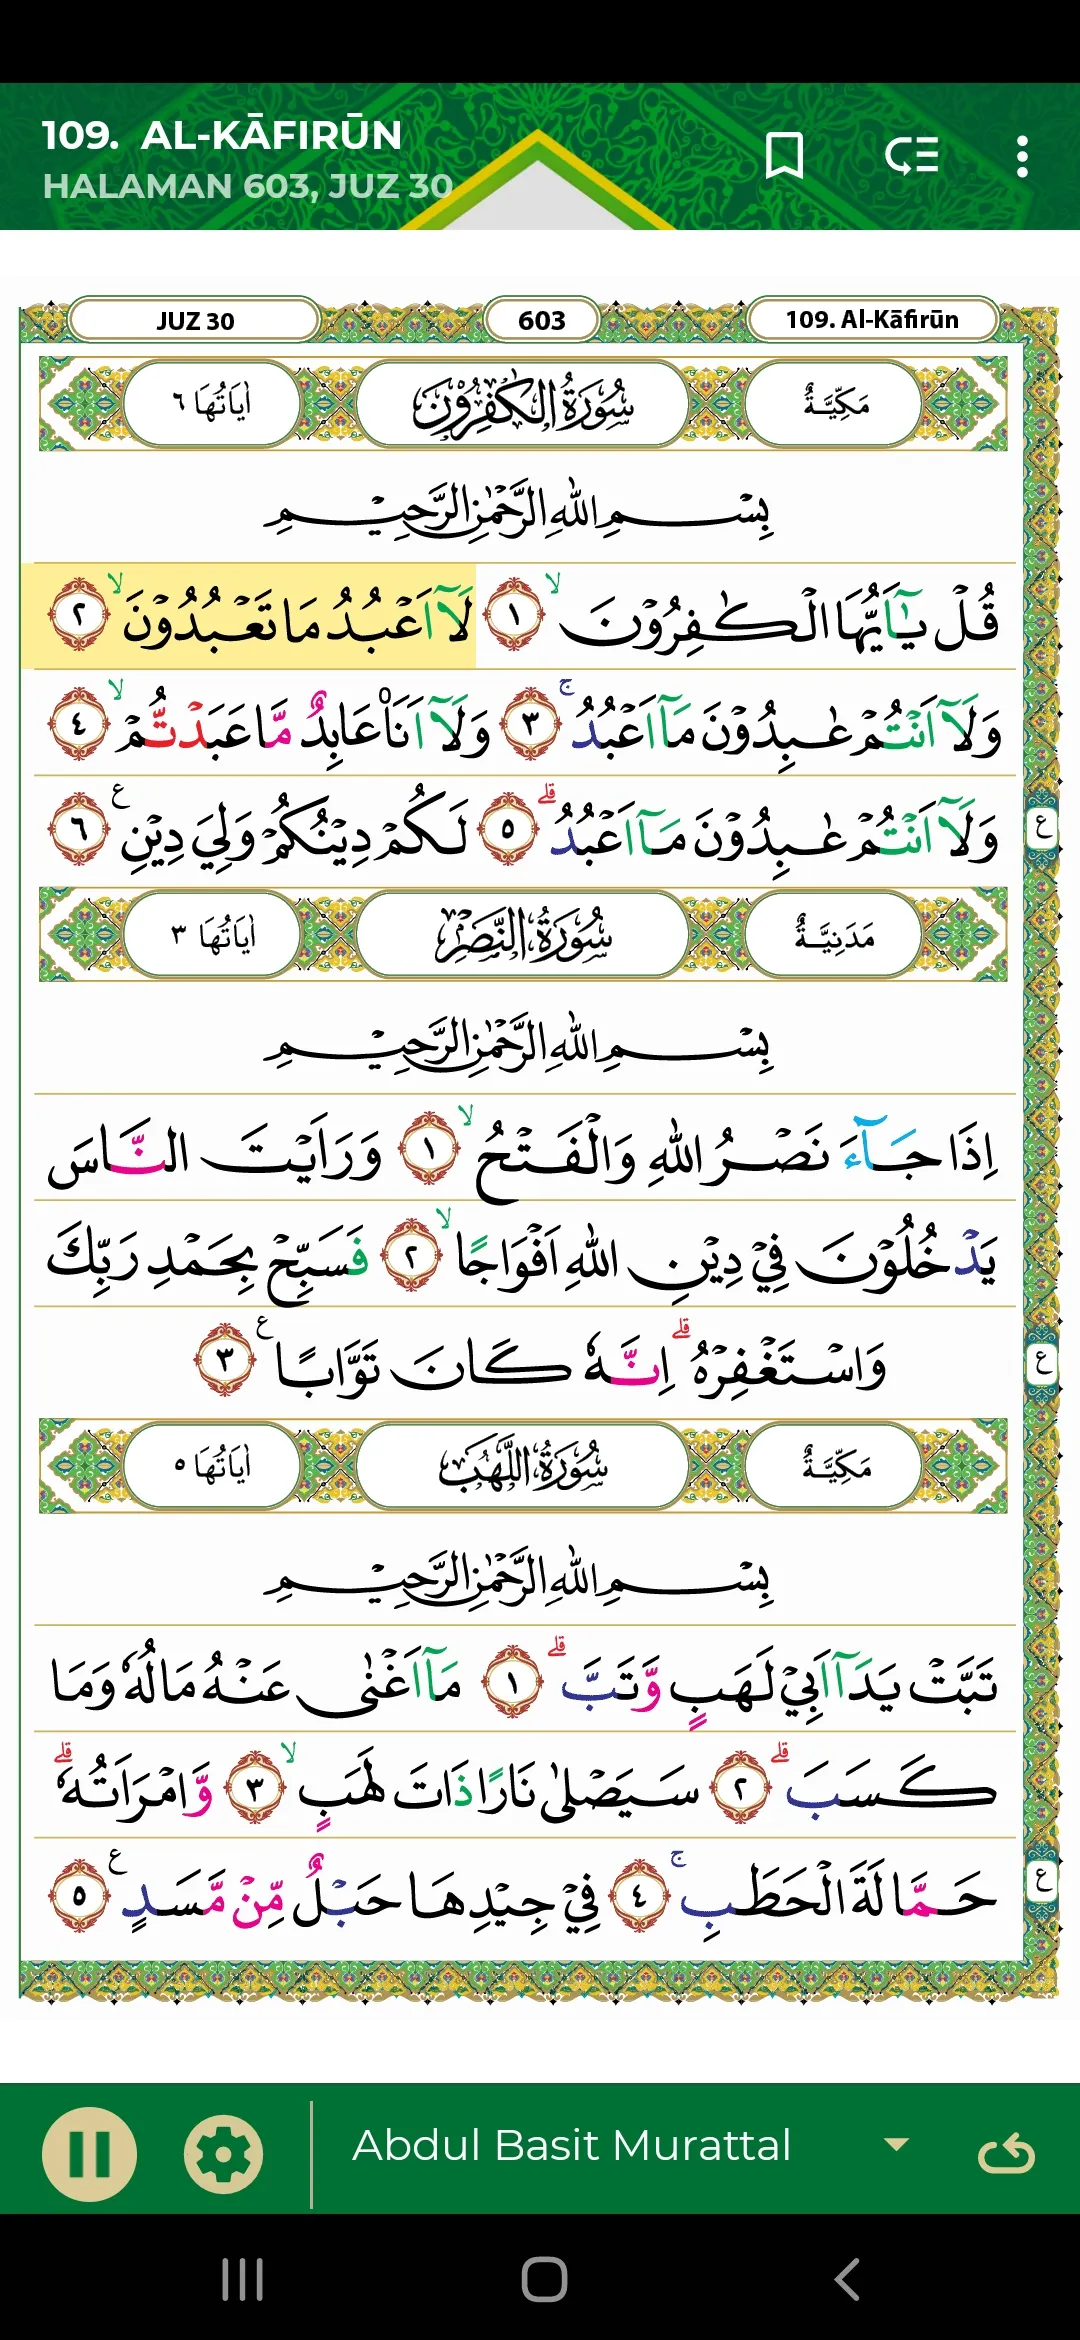 109. AL-KĀFIRŪN
HALAMAN 603, JUZ 30
JUZ 30
603
109. Al-Kāfirūn
مَكِّيَّةٌ سُوْرَةُ الْكٰفِرُوْنَ اٰيَاتُهَا ٦
بِسْمِ اللّٰهِ الرَّحْمٰنِ الرَّحِيْمِ
قُلْ يٰٓاَيُّهَا الْكٰفِرُوْنَۙ ١ لَآ اَعْبُدُ مَا تَعْبُدُوْنَۙ ٢
وَلَآ اَنْتُمْ عٰبِدُوْنَ مَآ اَعْبُدُۚ ٣ وَلَآ اَنَا۠ عَابِدٌ مَّا عَبَدْتُّمْۙ ٤
وَلَآ اَنْتُمْ عٰبِدُوْنَ مَآ اَعْبُدُۗ ٥ لَكُمْ دِيْنُكُمْ وَلِيَ دِيْنِ ع ٦
ع
مَدَنِيَّةٌ سُوْرَةُ النَّصْرِ اٰيَاتُهَا ٣
بِسْمِ اللّٰهِ الرَّحْمٰنِ الرَّحِيْمِ
اِذَا جَاۤءَ نَصْرُ اللّٰهِ وَالْفَتْحُۙ ١ وَرَاَيْتَ النَّاسَ
يَدْخُلُوْنَ فِيْ دِيْنِ اللّٰهِ اَفْوَاجًاۙ ٢ فَسَبِّحْ بِحَمْدِ رَبِّكَ
وَاسْتَغْفِرْهُۗ اِنَّهٗ كَانَ تَوَّابًا ع ٣
ع
مَكِّيَّةٌ سُوْرَةُ اللَّهَبِ اٰيَاتُهَا ٥
بِسْمِ اللّٰهِ الرَّحْمٰنِ الرَّحِيْمِ
تَبَّتْ يَدَآ اَبِيْ لَهَبٍ وَّتَبَّۗ ١ مَآ اَغْنٰى عَنْهُ مَالُهٗ وَمَا
كَسَبَۗ ٢ سَيَصْلٰى نَارًا ذَاتَ لَهَبٍۙ ٣ وَّامْرَاَتُهٗۗ
حَمَّالَةَ الْحَطَبِۚ ٤ فِيْ جِيْدِهَا حَبْلٌ مِّنْ مَّسَدٍ ع ٥
ع
Abdul Basit Murattal